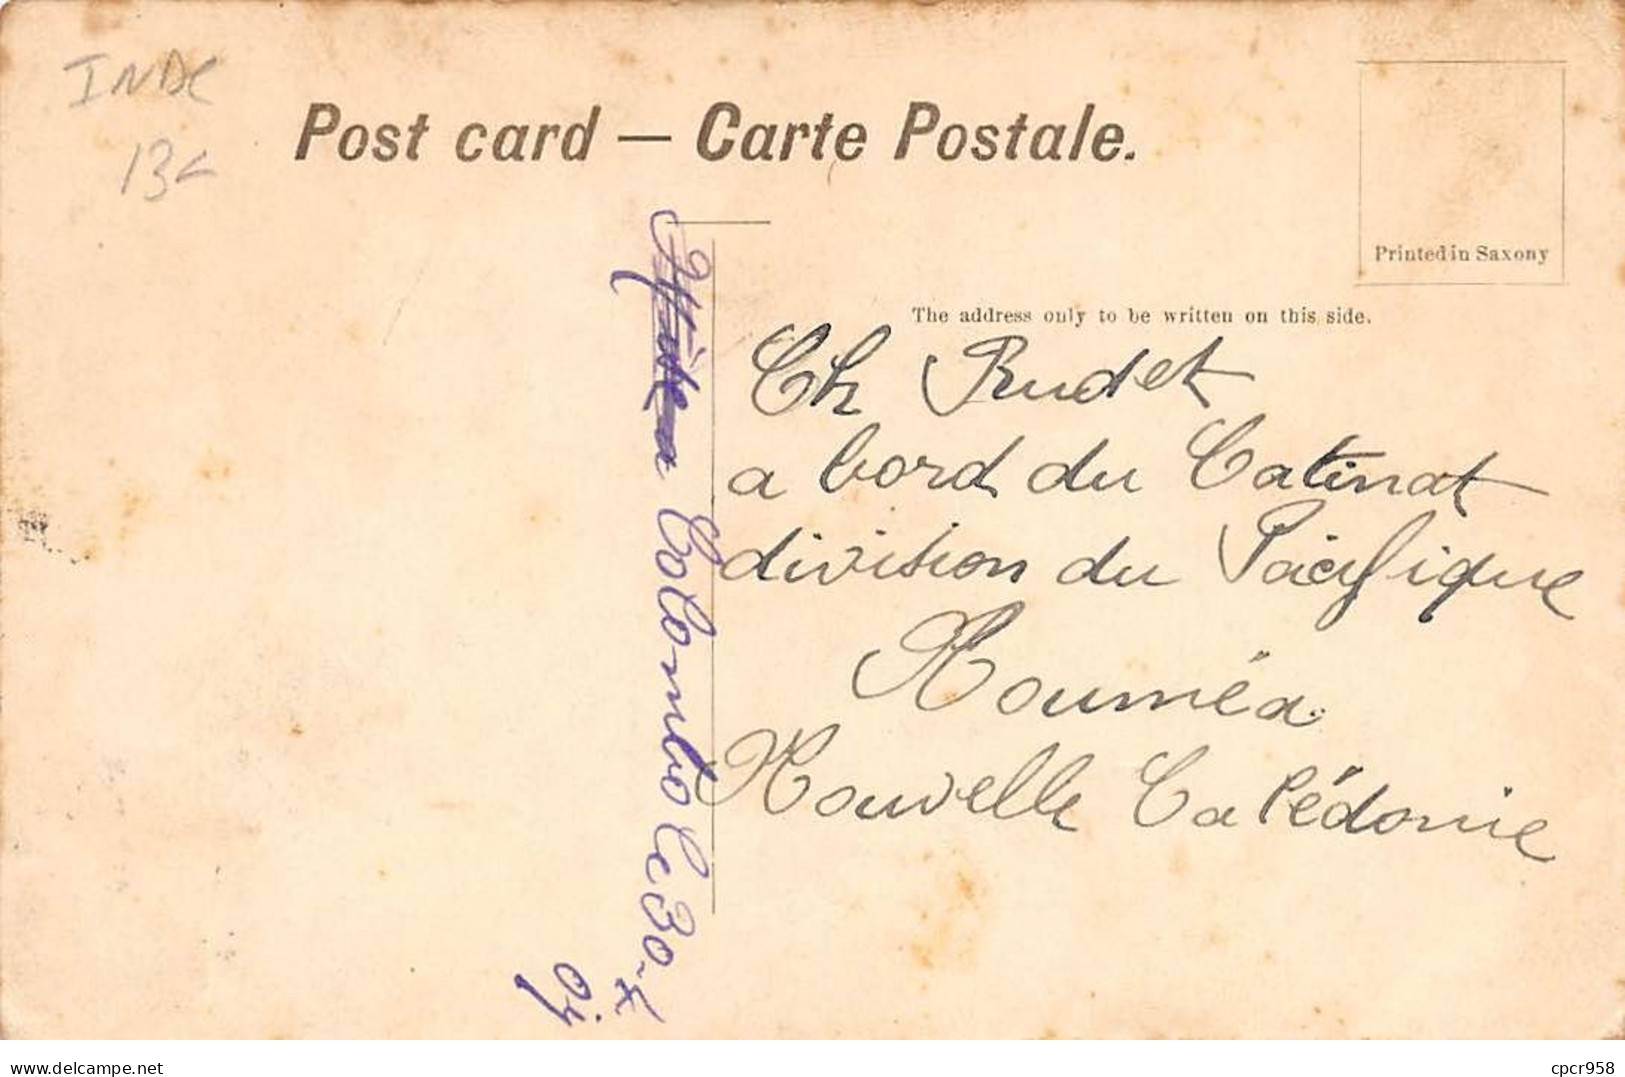 INDE
13
Post card — Carte Postale.
Printed in Saxony
The address only to be written on this side.
Ch Rudet
a bord du Catinat
division du Pacifique
Nouméa
Nouvelle Calédonie
Colombo Le 30-X
delcampe.net
cpcr958